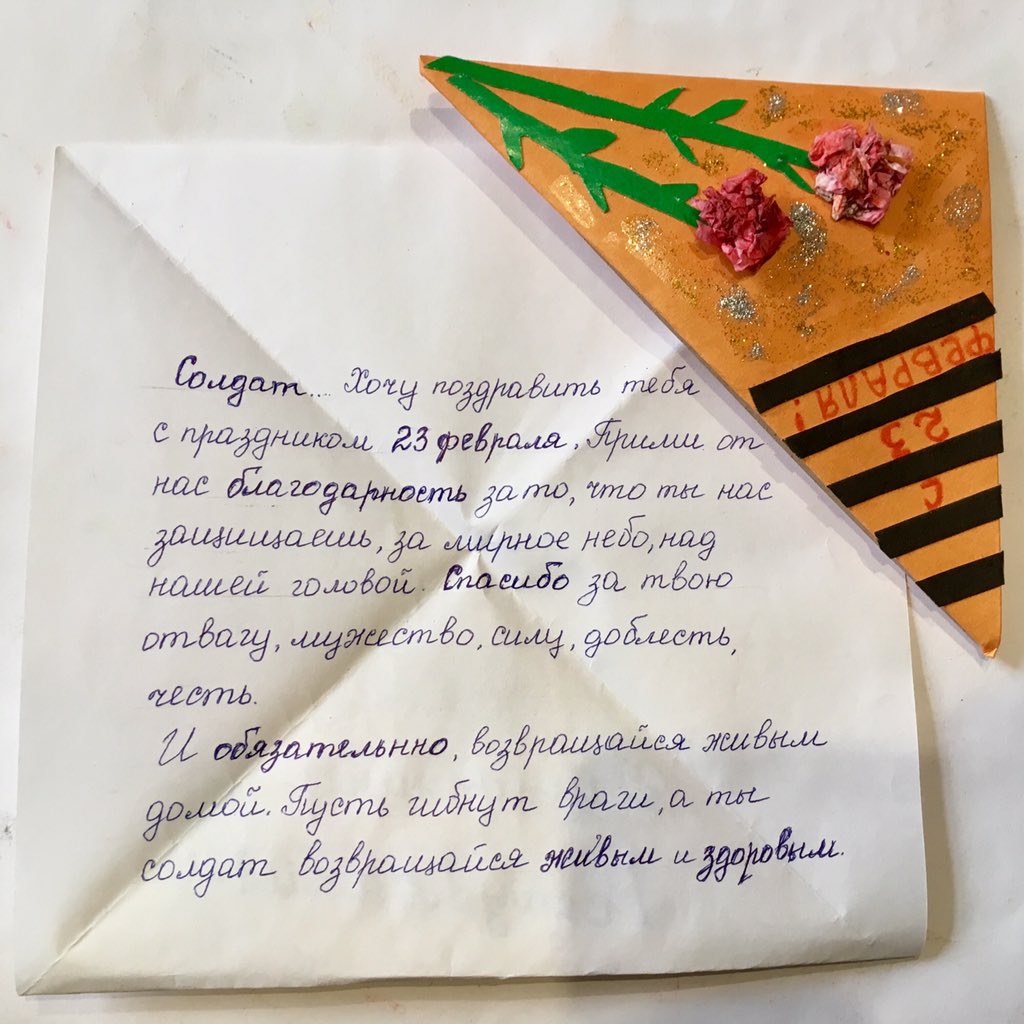 Солдат... Хочу поздравить тебя
с праздником 23 февраля. Прими от
нас благодарность за то, что ты нас
защищаешь, за мирное небо, над
нашей головой. Спасибо за твою
отвагу, мужество, силу, доблесть,
честь.
И обязательнно, возвращайся живым
домой. Пусть гибнут враги, а ты
солдат возвращайся живым и здоровым.
С
23
ФЕВРАЛЯ!